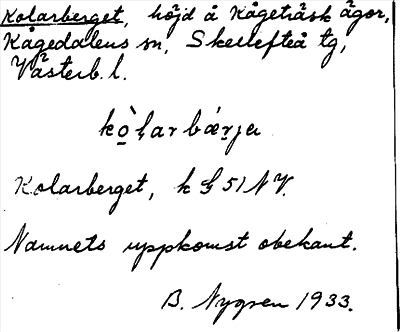 Kolarberget, höjd å Kågeträsk ägor,
Kågedalens sn, Skellefteå tg,
Västerb. l.
kò̱ḷarbǽrja
Kolarberget, k 51 NV.
Namnets uppkomst obekant.
B. Nygren 1933.